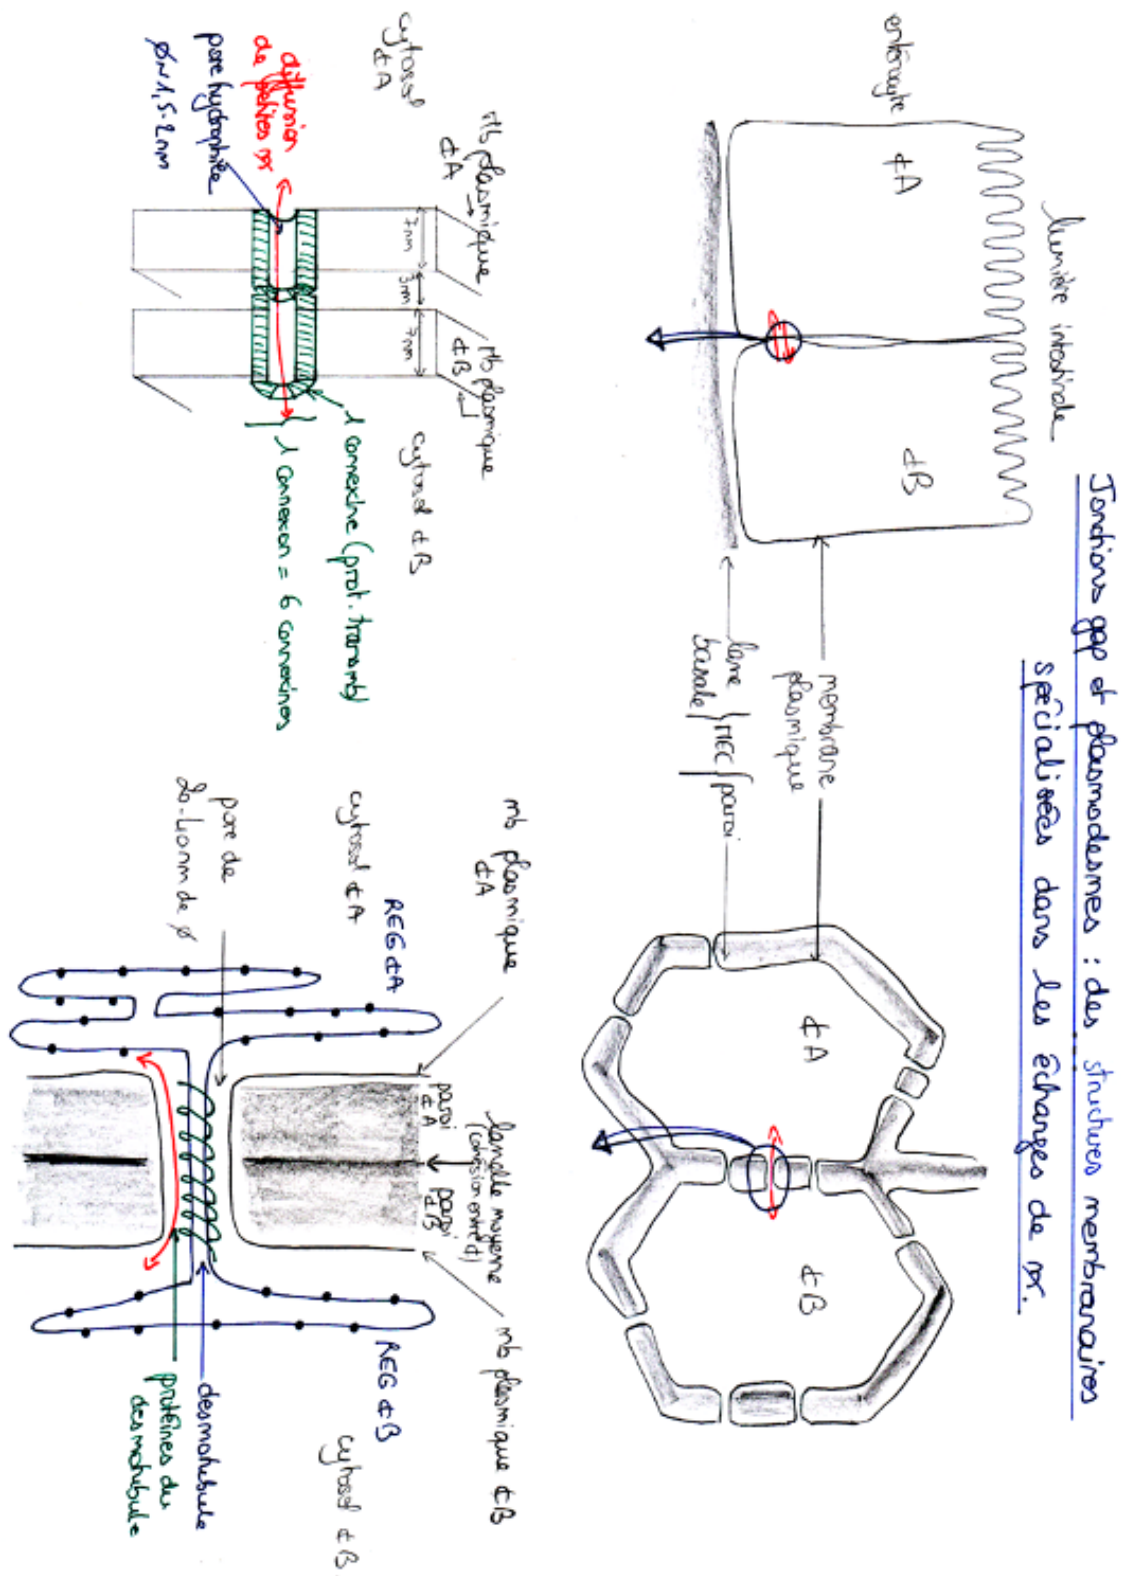 Jonctions gap et plasmodesmes : des structures membranaires
spécialisées dans les échanges de
lumière intestinale
entérocyte
¢A
¢B
membrane
plasmique
lame
basale / MEC / paroi
¢A
¢B
Mb plasmique
¢A
Mb plasmique
¢B
cytosol
¢A
cytosol ¢B
7nm
3nm
7nm
diffusion
de petites
pore hydrophile
Ø~1,5-2nm
1 connexine (prot. transmb)
1 connexon = 6 connexines
mb plasmique
¢A
lamelle moyenne
(cohésion entre ¢)
mb plasmique ¢B
paroi
¢A
paroi
¢B
cytosol ¢A
REG ¢A
REG ¢B
cytosol ¢B
pore de
20-40nm de Ø
desmotubule
protéines du
desmotubule